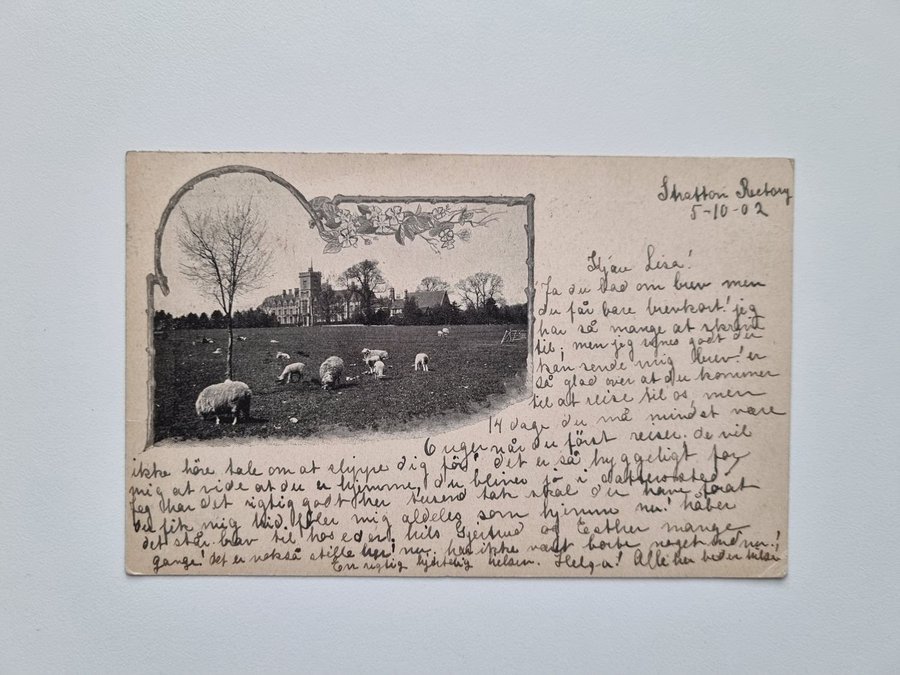 Stratton Rectory
5-10-02
Kjære Lisa!
Ja du bad om brev men
du får bare brevkort! jeg
har så mange at skrive
til; men jeg synes godt du
kan sende mig brev! er
så glad over at du kommer
til at reise til os, men
14 dage du må mindst være
6 uger når du først reiser. de vil
ikke høre tale om at slippe dig før! det er så hyggeligt for
mig at vide at du er hjemme, du bliver jo i datters sted
Jeg har det rigtig godt her tusend tak skal du have forat
du fik mig hid, føler mig aldeles som hjemme nu! håber
det står brav til hos eder! hils Gjertrud og Esther mange
gange! det er nokså stille her! nu. har ikke vært borte noget end nu!
En rigtig hjertelig hilsen. Helga! Alle her beder hilse